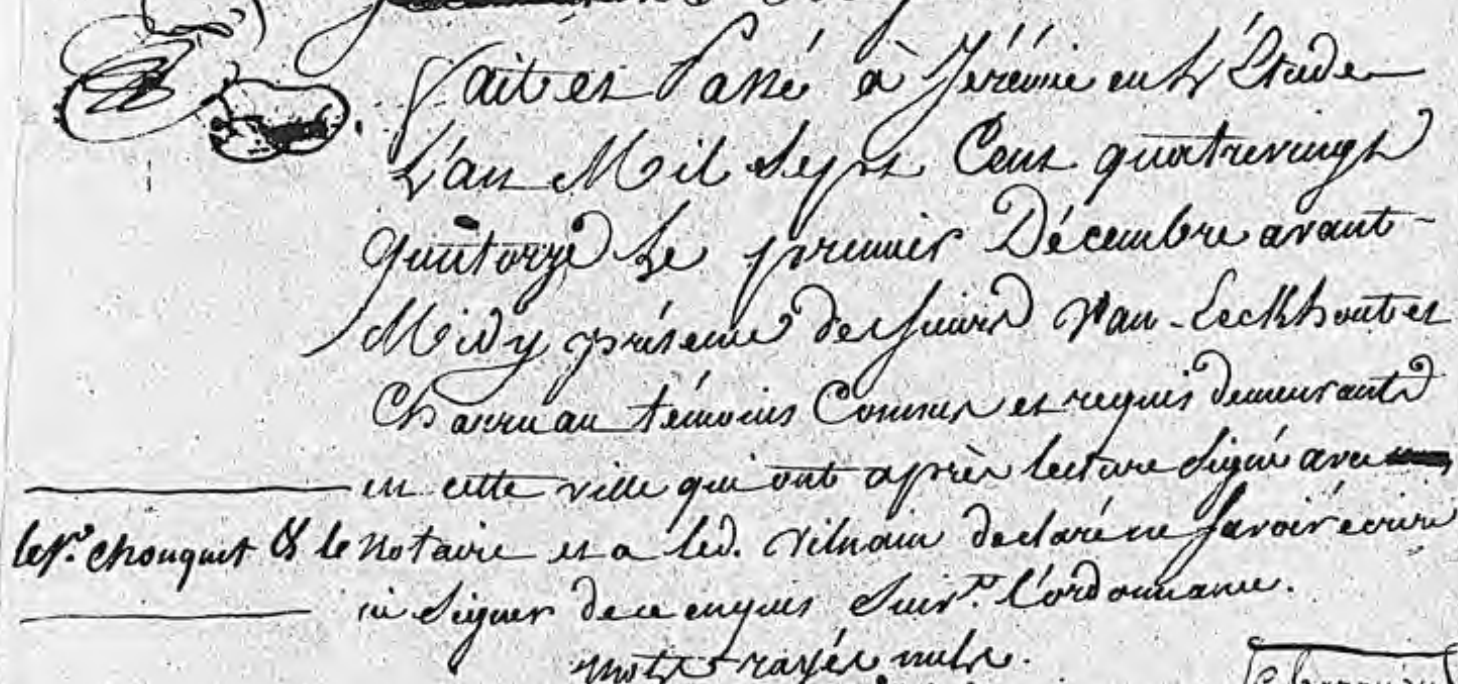 Fait et Passé à Jérémie en l'Etude
L'an Mil Sept Cent quatrevingt
quatorze le premier Décembre avant-
Midy présence des sieurs Van-Eeckhout et
Charruau témoins Connus et requis demeurants
en cette ville qui ont après lecture signé avec
le Sr. Chouquet & le notaire et a led. Vilnain declaré ne savoir écrire
ni signer de ce enquis suivt. l'ordonnance.
mots rayés nuls.